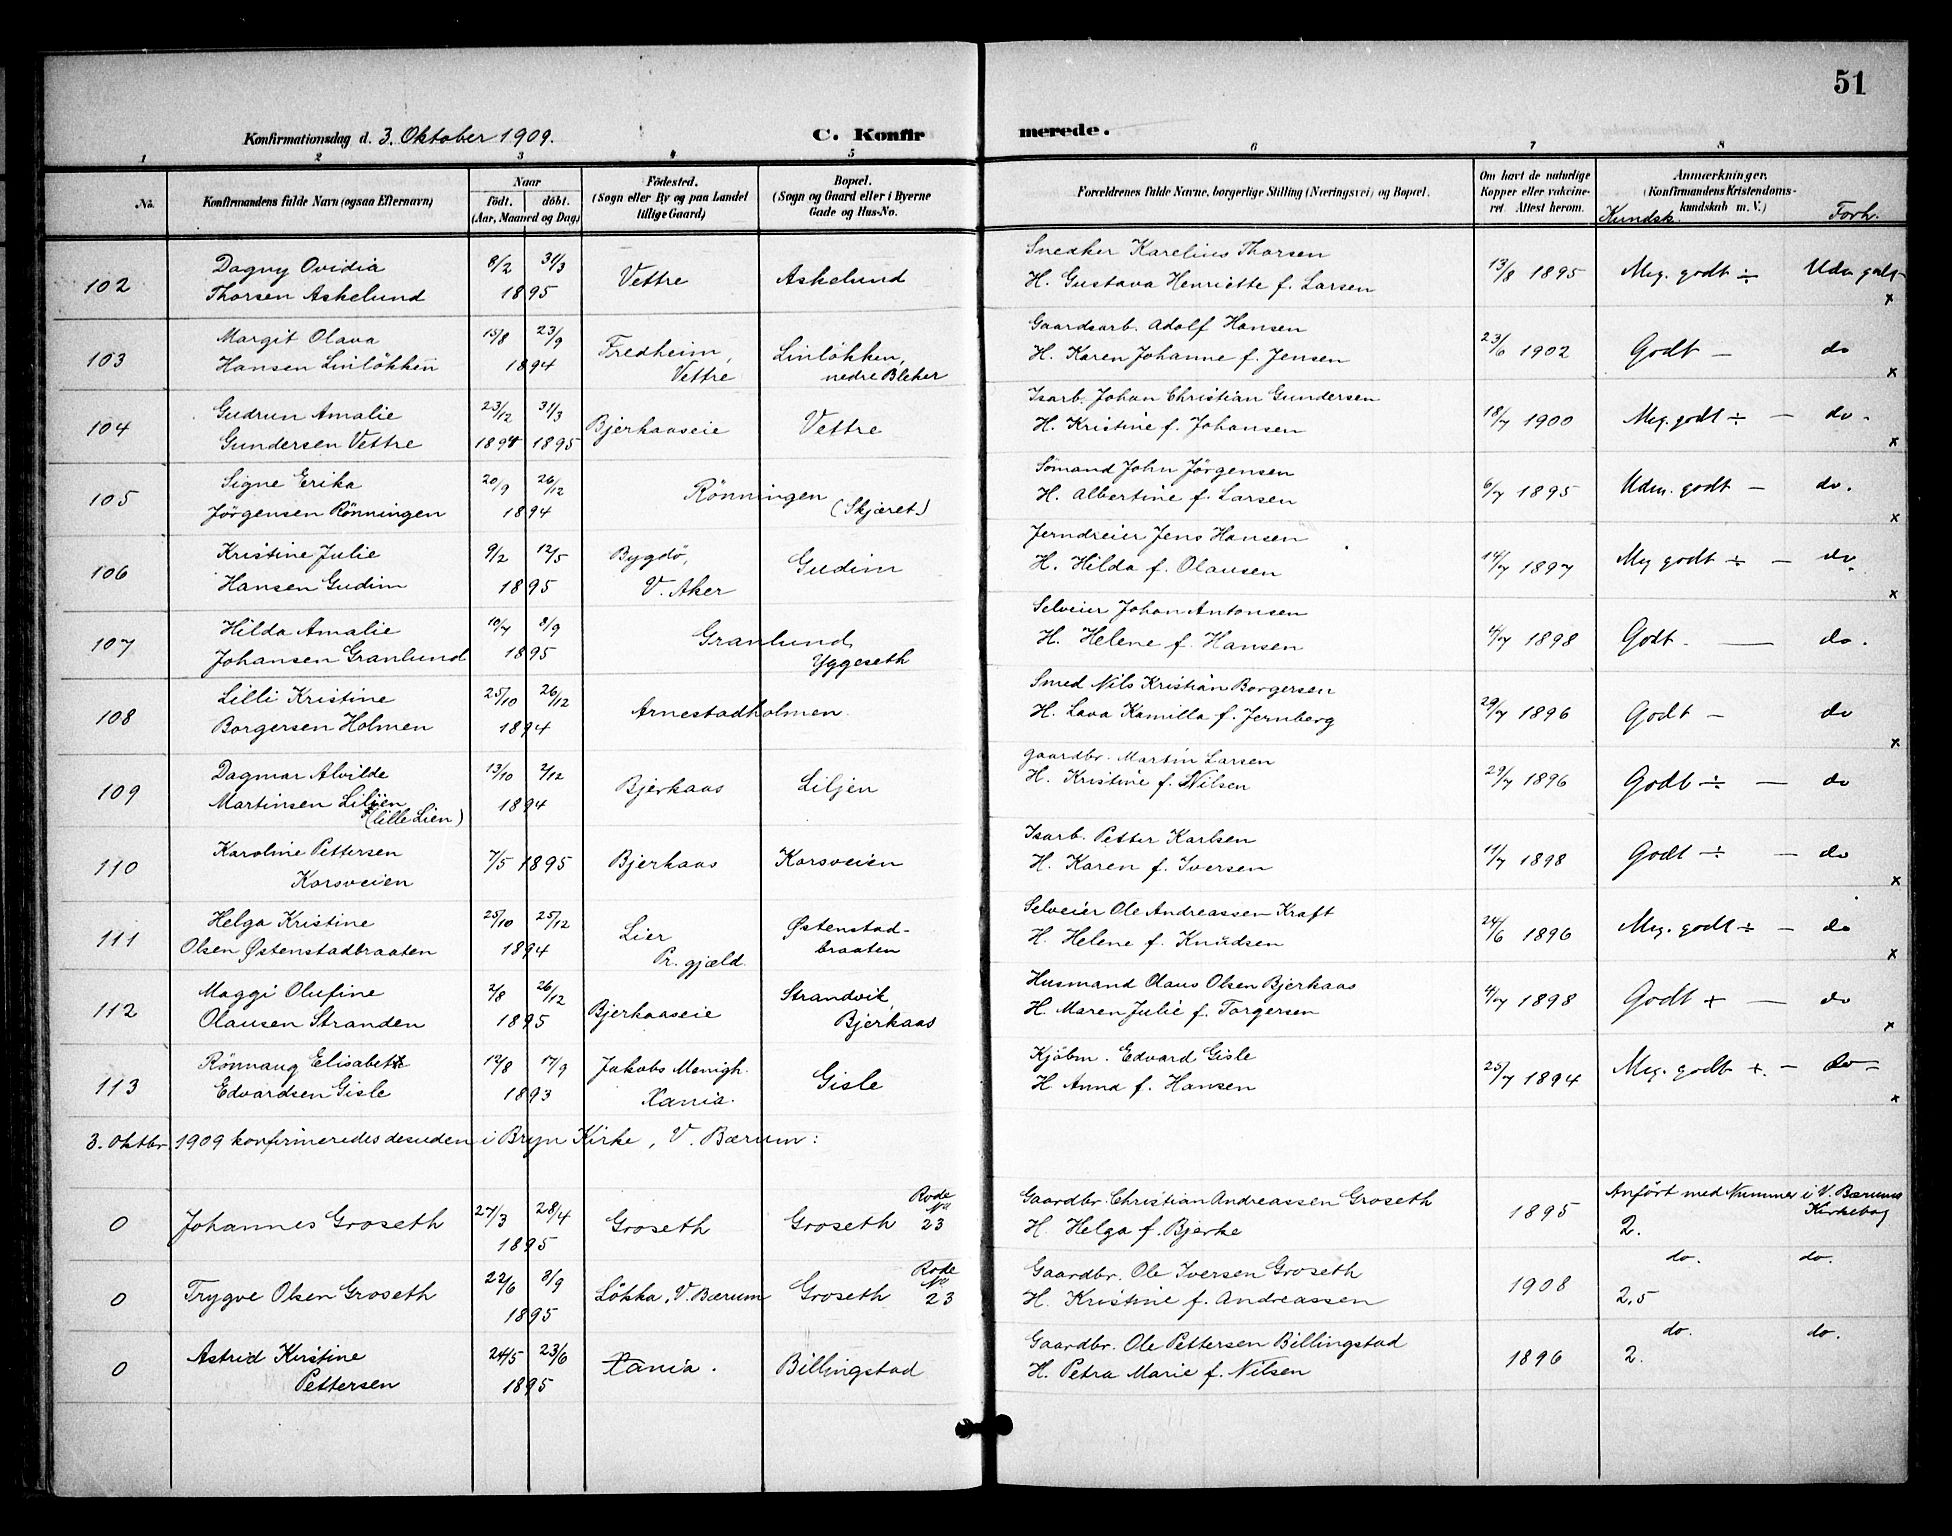 51
Konfirmationsdag d. 3. Oktober 1909.
C. Konfirmerede.
1 2 3 4 5 6 7 8
No.
Konfirmandens fulde Navn (ogsaa Efternavn)
Naar
født. døbt.
(Aar, Maaned og Dag)
Fødested.
(Sogn eller By og paa Landet
tillige Gaard)
Bopæl.
(Sogn og Gaard eller i Byerne
Gade og Hus-No.
Forældrenes fulde Navne, borgerlige Stilling (Næringsvei) og Bopæl.
Om havt de naturlige
Kopper eller vakcine-
ret. Attest herom.
Anmærkninger.
(Konfirmandens Kristendoms-
kundskab m. V.)
Kundsk. Forh.
102 Dagny Ovidia 8/2 31/3 Vettre Askelund Snedker Karelius Thorsen 13/8 1895 Meg. godt ÷
Thorsen Askelund 1895 H. Gustava Henriette f. Larsen x
103 Margit Olava 15/8 23/9 Fredheim, Linløkken, Gaardsarb. Adolf Hansen 23/6 1902 Godt — do
Hansen Linløkken 1894 Vettre nedre Bleker H. Karen Johanne f. Jensen x
104 Gudrun Amalie 23/12 31/3 Bjerkaaseie Vettre Isarb. Johan Christian Gundersen 18/7 1900 Meg. godt ÷ — do -
Gundersen Vettre 1894 1895 H. Kristine f. Johansen x
105 Signe Erika 20/9 26/12 Rønningen Sømand John Jörgensen 6/7 1895 Udm. godt — do.
Jørgensen Rønningen 1894 (Skjæret) H. Albertine f. Larsen x
106 Kristine Julie 9/2 12/5 Bygdö, Gudim Jerndreier Jens Hansen 14/7 1897 Meg godt ÷ — do.
Hansen Gudim 1895 V. Aker H. Hilda f. Olausen x
107 Hilda Amalie 10/7 8/9 Granlund, Selveier Johan Antonsen 4/7 1898 Godt. — do.
Johansen Granlund 1895 Yggeseth H. Helene f. Hansen
108 Lilli Kristine 25/10 26/12 Arnestadholmen. Smed Nils Kristian Borgersen 29/7 1896 Godt — do
Borgersen Holmen 1894 H. Lava Kamilla f. Jernberg x
109 Dagmar Alvilde 13/10 2/12 Bjerkaas Liljen Gaardbr. Martin Larsen 29/7 1896 Godt ÷ — do
Martinsen Liljen 1894 H. Kristine f. Nilsen
(lille Lien)
110 Karoline Pettersen 7/5 1895 Bjerkaas Korsveien Isarb. Petter Karlsen 11/7 1898 Godt ÷ — do
Korsveien H. Karen f. Iversen x
111 Helga Kristine 25/10 25/12 Lier Østenstad- Selveier Ole Andreassen Kraft 24/6 1896 Meg. godt ÷ — do
Olsen Østenstadbraaten 1894 Pr. gjæld. braaten H. Helene f. Knudsen x
112 Maggi Olufine 2/8 26/12 Bjerkaaseie Strandvik, Husmand Olaus Olsen Bjerkaas 4/7 1898 Godt + — do
Olausen Stranden 1895 Bjerkaas H. Maren Julie f. Torgersen x
113 Rønnaug Elisabeth 12/8 17/9 Jakobs Menigh. Gisle Kjøbm. Edvard Gisle 25/7 1894 Meg. godt +. — do —
Edvardsen Gisle 1893 Xania. H. Anna f. Hansen x
3. Oktbr. 1909 konfirmeredes desuden i Bryn Kirke, V. Bærum:
0 Johannes Groseth 27/3 28/4 Groseth Groseth Rode No 23 Gaardbr. Christian Andreassen Groseth 1895 Anført med Nummer i V. Bærums
1895 H. Helga f. Bjerke 2. Kirkebog
0 Trygve Olsen Groseth 22/6 8/9 Løkka, V. Bærum Groseth Rode No 23 Gaardbr. Ole Iversen Groseth 1908 do. do.
1895 H. Kristine f. Andreassen 2,5
0 Astrid Kristine 24/5 23/6 Xania. Billingstad Gaardbr. Ole Pettersen Billingstad 1896 do. do.
Pettersen 1895 H. Petra Marie f. Nilsen 2.